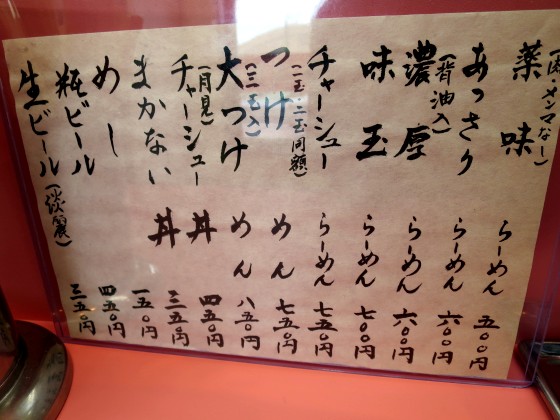 (肉メンマなし)
薬味らーめん 五〇〇円
あっさりらーめん 六〇〇円
(背油入)
濃厚らーめん 六〇〇円
味玉らーめん 七〇〇円
チャーシューらーめん 七五〇円
(一玉・二玉同額)
つけめん 七五〇円
(三玉入)
大つけめん 八五〇円
(月見)
チャーシュー丼 四五〇円
まかない丼 三五〇円
めし 一五〇円
瓶ビール 四五〇円
生ビール(淡麗) 三五〇円